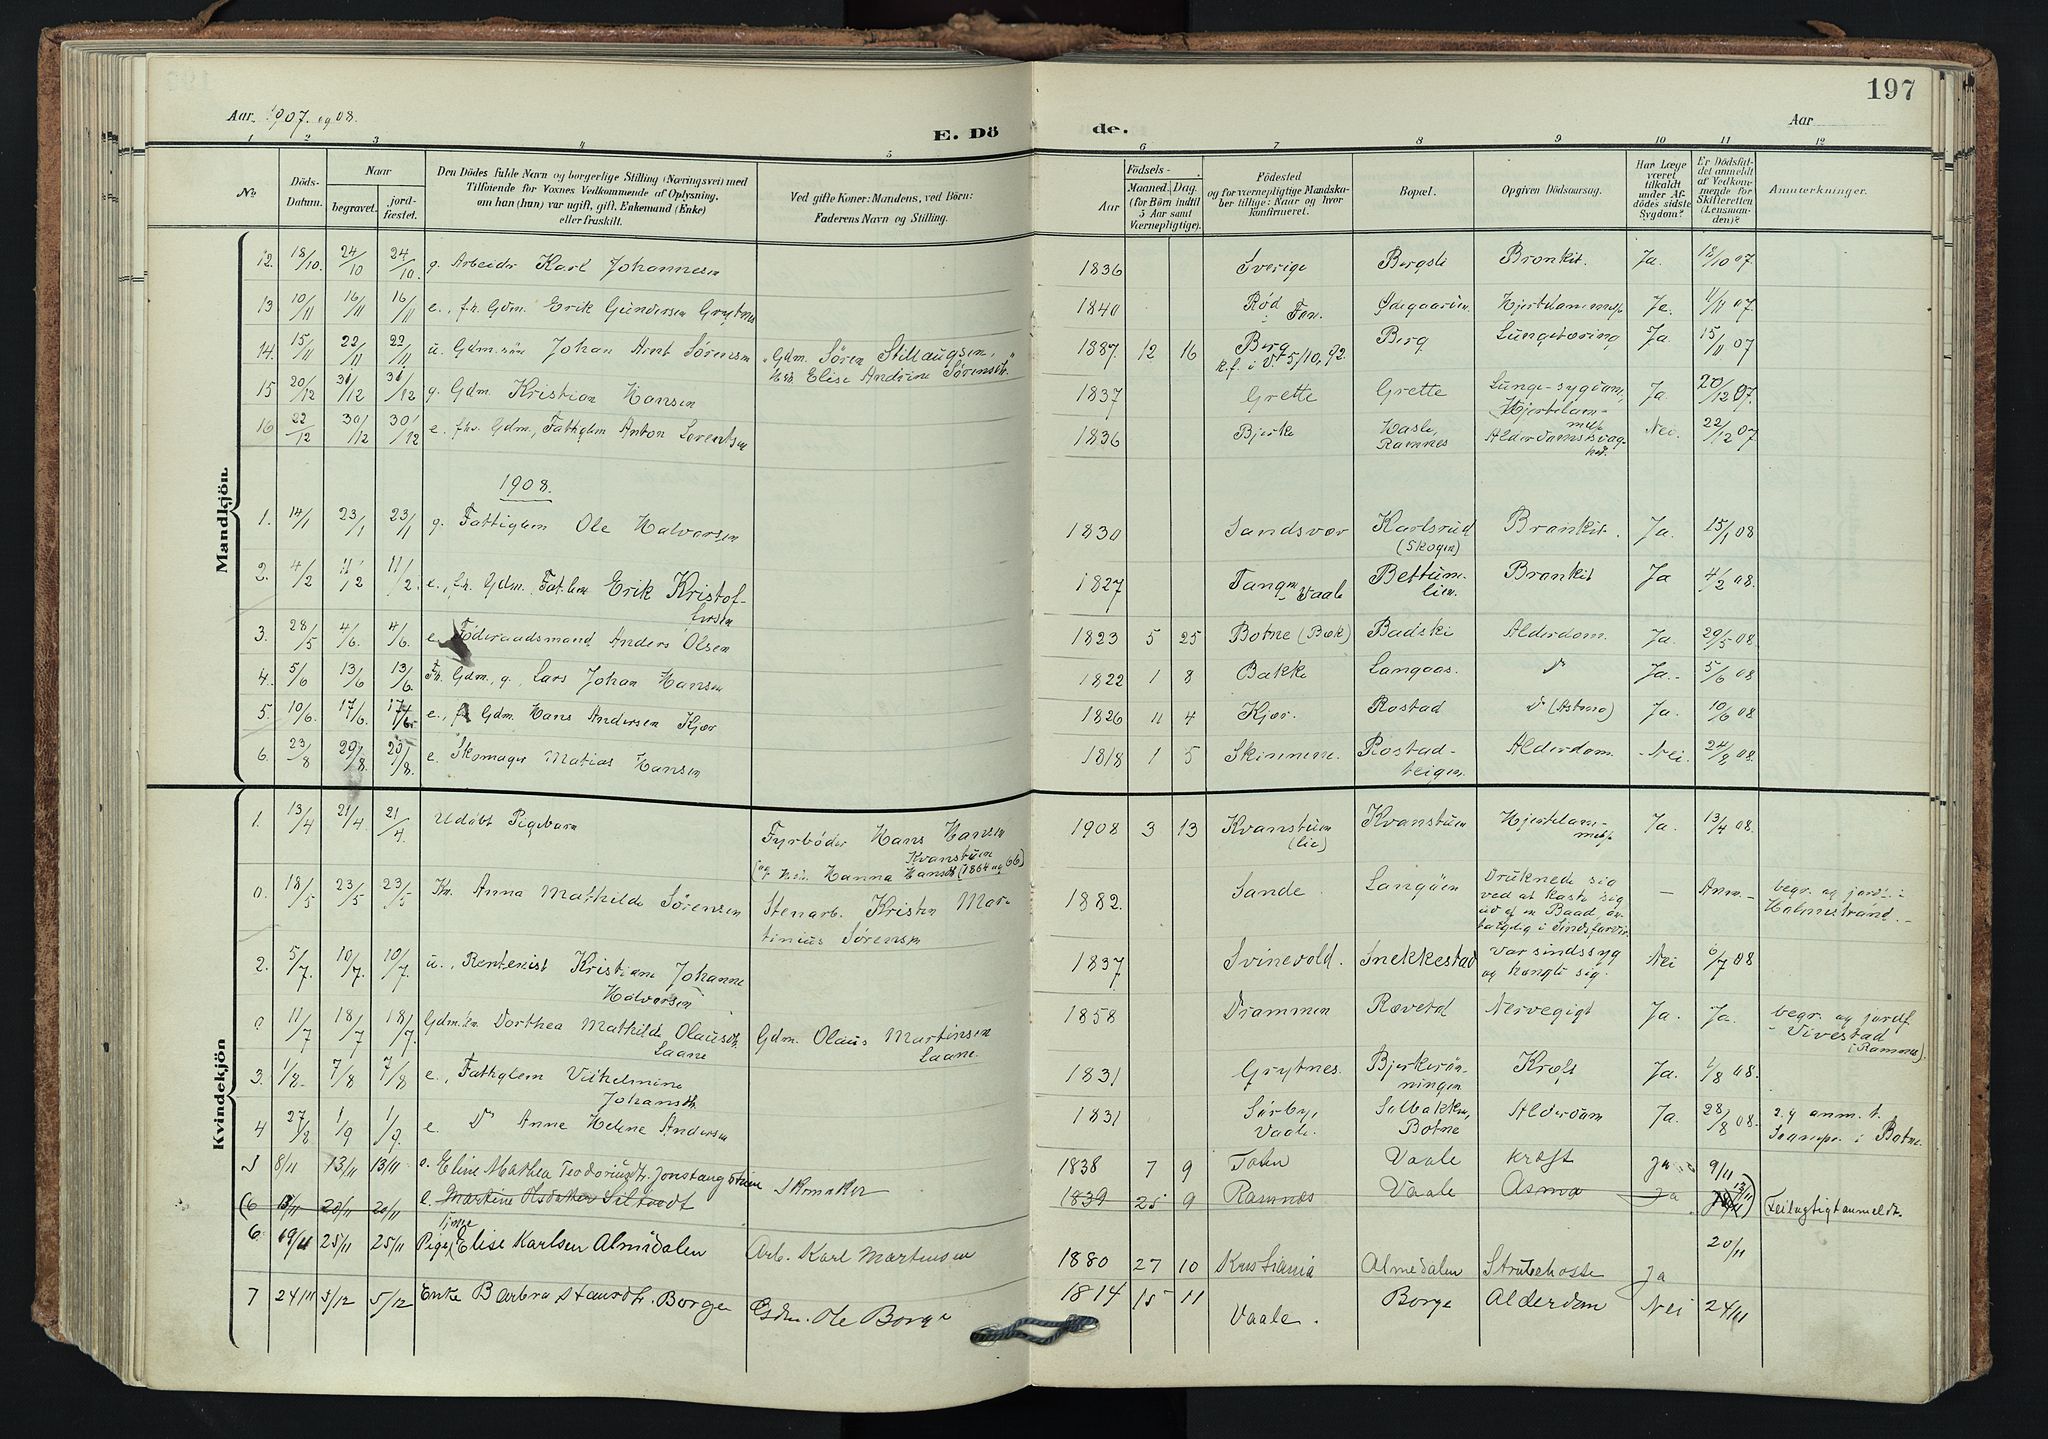 197
Aar 1907 og 08.
E. Dö
de.
Aar
1 2 3 4 5 6 7 8 9 10 11 12
No
Döds-Datum.
Naar
begravet.
jord-fæstet.
Den Dödes fulde Navn og borgerlige Stilling (Næringsvei) med
Tilföiende for Voxnes Vedkommende af Oplysning,
om han (hun) var ugift, gift, Enkemand (Enke)
eller fraskilt.
Ved gifte Koner: Mandens, ved Börn:
Faderens Navn og Stilling.
Födsels-
Aar
Maaned. Dag.
(for Börn indtil
5 Aar samt
Værnepligtige).
Födested
og for værnepligtige Mandska-
ber tillige: Naar og hvor
konfirmeret.
Bopæl.
Opgiven Dödsaarsag.
Har Læge
været
tilkaldt
under Af-
dödes sidste
Sygdom?
Er Dödsfal-
det anmeldt
af Vedkom-
mende for
Skifteretten
(Lensman-
den)?
Anmærkninger.
Mandkjön.
12. 18/10. 24/10 24/10 g. Arbeider Karl Johannesen 1836 Sverige Bergsli Bronkit. Ja. 18/10 07.
13 10/11 16/11 16/11 e., fh. Gdm. Erik Gundersen Grytnes 1840 Rød i Fon. Ødegaarden Hjertelammelse Ja. 11/11 07.
14. 15/11 22/11 22/11 u. Gdm.søn Johan Arnt Sørensen Gdm. Søren Stillaugsen, 1887. 12 16 Berg Berg Lungetæring Ja 15/11 07
Hst. Elise Andrine Sørensdt. k.f. i V. 5/10, 92.
15 20/12 31/12 31/12 g. Gdm. Kristian Hansen 1837 Grette Grette Lunge-sygdom, Ja. 20/12 07.
Hjertelam-
melse
16 22/12 30/12 30/12 e. fhv. Gdm., Fattiglem Anton Lorentsen 1836 Bjerke Hasle, Ramnes Alderdomssvag-hed. Nei. 22/12 07
1908.
1. 14/1 23/1 23/1 g. Fattiglem Ole Halvorsen 1830 Sandsvær Karlsrud Bronkit. Ja. 15/1 08
(Skogen)
2. 4/2 11/2 11/2. e., fh. Gdm., Fat.lem Erik Kristof-
fersen 1827 Tangen Vaale Bettum-
lien. Bronkit Ja 4/2 08.
3. 28/5 4/6. 4/6. e. Föderaadsmand Anders Olsen 1823 5 25 Botne (Bæk) Badski Alderdom. Ja. 29/5 08.
4. 5/6 13/6 13/6. Fh. Gdm., g., Lars Johan Hansen 1822 1 8 Bakke Langaas. D Ja. 5/6 08
5. 10/6. 17/6. 17/6. e., fh Gdm. Hans Andersen Kjær 1826 11 4 Kjær. Rostad D (Astma) Ja. 10/6 08.
6. 23/8 29/8. 29/8. e. Skomager Matias Hansen 1818 1 5 Skinmene. Rostad-
teigen. Alderdom. Nei. 24/8 08.
Kvindekjön
1. 13/4 21/4. 21/4 Udöbt Pigebarn Fyrböder Hans Hansen 1908 3 13 Kvanstuen Kvanstuen Hjertelam-
melse Ja. 13/4 08.
Kvanstuen (lie)
(og Hst. Hanna Hansdt. (1864 og 66)
0. 18/5 23/5 23/5 Kn. Anna Mathilde Sørensen Stenarb. Kristen Mar-
tinius Sørensen 1882. Sande. Langöen Druknede sig
ved at kaste sig
ud af en Baad, an-
tagelig i Sindsforvir. — Anm. begr. og jordf. i
Holmestrand.
2. 5/7. 10/7. 10/7. u., Rentenist Kristiane Johanne
Halvorsen 1837 Svinevold. Snekkestad Var sindssyg
og hængte sig. Nei 6/7 08
0 11/7 18/7 18/7. Gdm.kn. Dorthea Mathilde Olausdt.
Laane Gdm. Olaus Martinsen
Laane. 1858 Drammen Rævetd Nervegigt Ja. Ja. begr. og jordf.
i Vivestad
(Ramnes).
3. 1/8. 7/8 7/8 e., Fattiglem Vilhelmine
Johansdt. 1831 Grytnes. Bjerkerön-
ningen Kræft Ja. 1/8 08.
4 27/8 1/9 1/9. e. D Anne Helene Andersen 1831 Sørby,
Vaale. Solbakken,
Botne Alderdom Ja. 28/8 08. anm. t.
i Botne.
5 8/11 13/11 13/11 e. Eline Mathea Teodoriusdt. Jonstang Skomaker 1838 7 9 Vaale kræft Ja 9/11
(6 20/11 20/11 e. Martine 1839 25 9 Ramnæs Vaale Asma Ja 13/11) Feilagtigt anmeldt.
6. 19/11 25/11 25/11 Tjeneste
Pige, Elise Karlsen Almedalen Arb. Karl Martinsen 1880 27 10 Kristiania Almedalen Strubehoste Ja 20/11
7 24/11 5/12 5/12 Enke Barbra Borge Gdm. Ole Borge 1814 15 11 Vaale. Borge Alderdom Nei 24/11